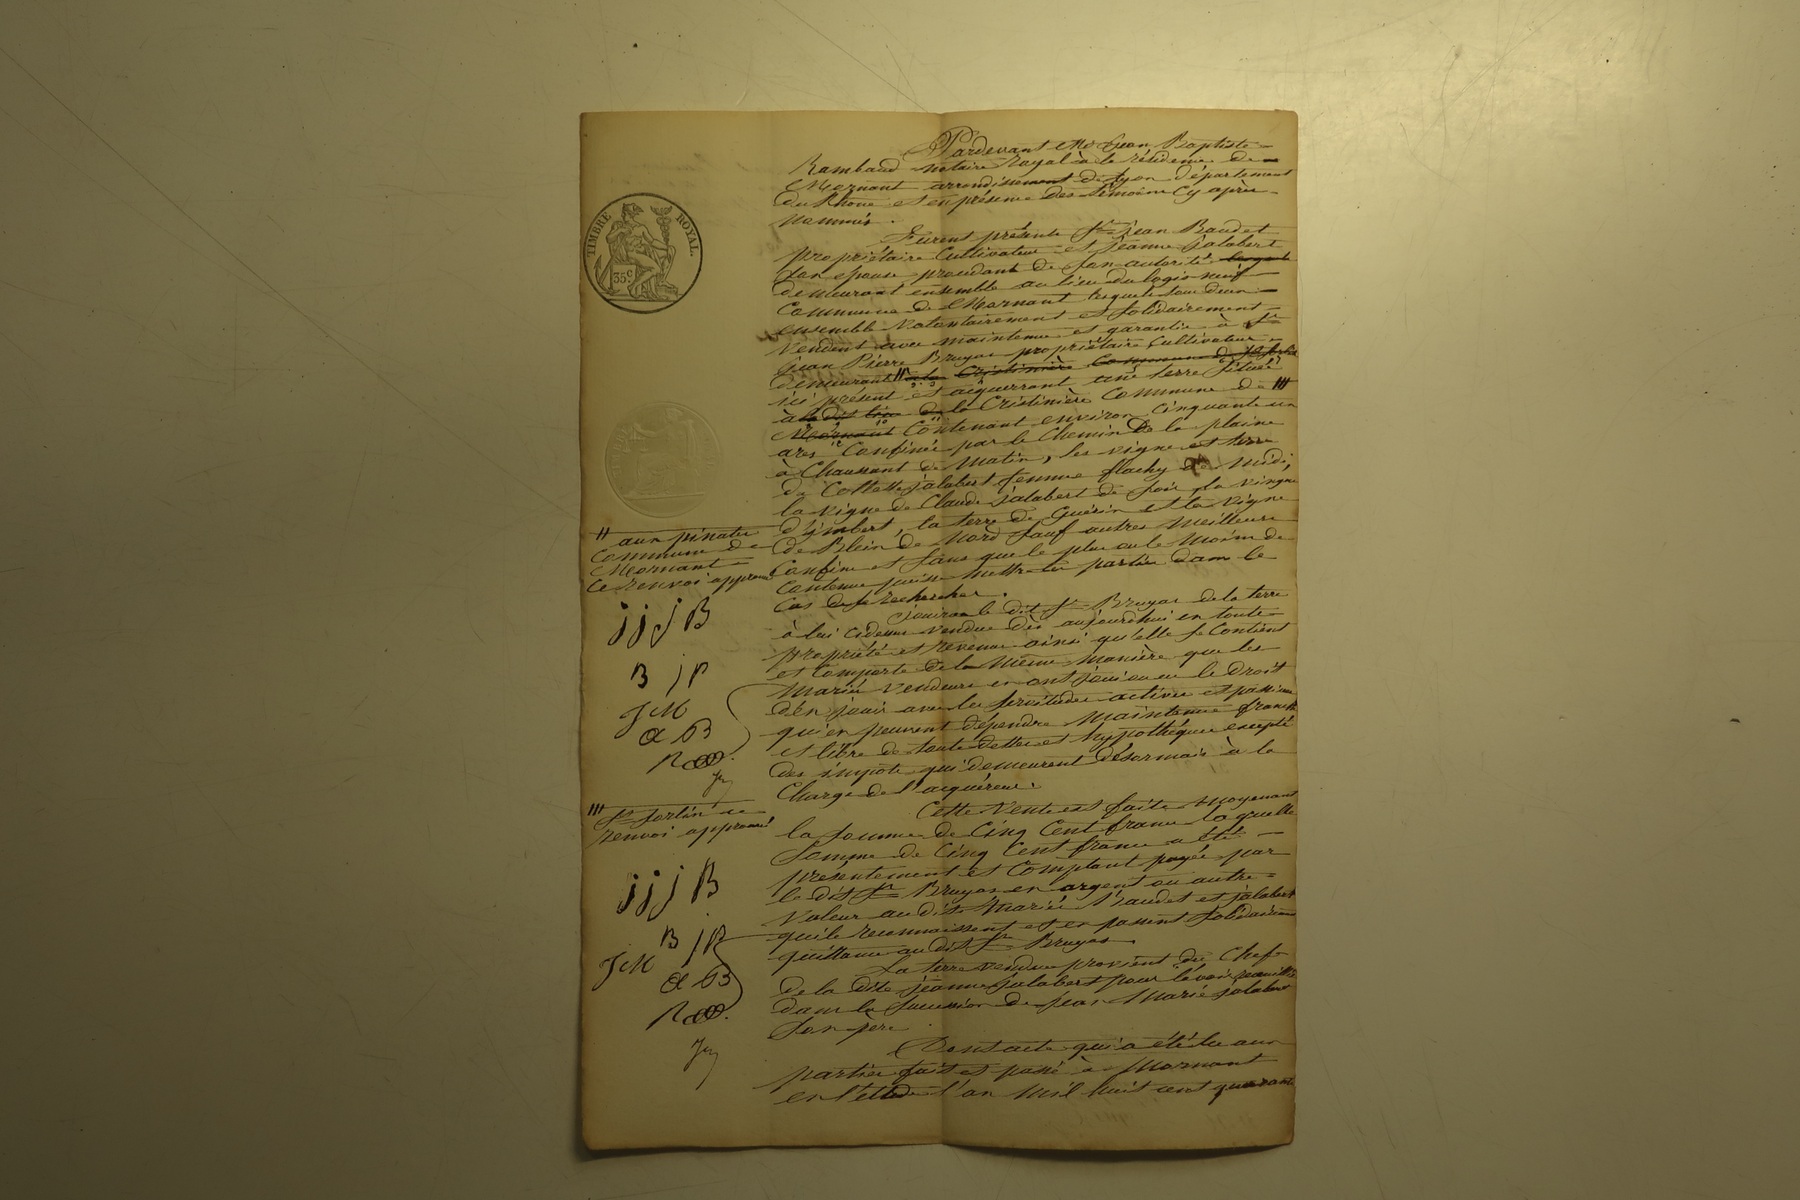 Pardevant Me Jean Baptiste
Rambaud notaire Royal à la résidence de
Mornant arrondissement de Lyon département
du Rhône et en présence des témoins Cy après
nommés.
Furent présents Sr Jean Baudet
propriétaire Cultivateur et jeanne jalabert
son epouse procedant de son autorité
demeurant ensemble au lieu du logis neuf
Commune de Mornant lesquels tous deux
ensemble volontairement et solidairement
vendent avec maintenue et garantie à Sr
jean Pierre Bruyas propriétaire Cultivateur
demeurant // a la Cristinière Commune de St Sorlin
ici présent et acquerrant une terre située
à la Cristinière Commune de ///
Mornant Contenant environ Cinquante un
ares Confinée par le Chemin de la plaine
à Chaussant de Matin, les vigne et terre
de Collette jalabert femme flachy de Midi,
la vigne de Claude jalabert de soir, la vingne
d'ymbert, la terre de Guérin et la vigne
de Blein de Nord sauf autres meilleurs
Confins et sans que le plus ou le Moins de
Contenue puisse mettre les parties dans le
Cas de se rechercher.
jouira le dit Sr Bruyas de la terre
à lui cidessus vendue dès aujourdhui en toute
propriété et revenu ainsi qu'elle se Contient
et Comporte de la Même Manière que les
Mariés vendeurs en ont joui ou eu le droit
d'en jouir avec les servitudes actives et passives
qui en peuvent dépendre Maintenue franche
et libre de toute dettes et hypothéques excepté
des impots qui demeurent désormais à la
Charge de l'acquéreur.
Cette Vente est faite Moyenant
la somme de Cinq Cent francs la quelle
somme de Cinq Cent francs a été
présentement et Comptant payée par
le dit Sr Bruyas en argent ou autre
Valeur au dits Mariés Baudet et jalabert
qui le reconnaissent et en passent solidairement
quittance au dit Sr Bruyas.
La terre vendue provient du Chef
de la dite jeanne jalabert pour l'avoir recueillie
dans la succession de jean Marie jalabert
son père.
Dont acte qui a été lu aux
parties fait et passé à Mornant
en l'etude l'an Mil huit cent quarante
TIMBRE ROYAL
35c
// aux pinates
Commune de
Mornant
Ce renvoi approuvé
j j j B
B j P
JCM
a B
R
/// St Sorlin ce
renvoi approuvé
j j j B
B j B
JCM
a B
R